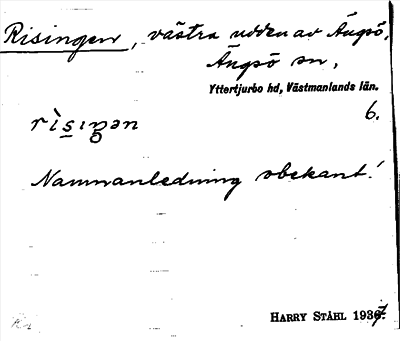 Risingen, västra udden av Ängsö,
Ängsö sn,
Yttertjurbo hd, Västmanlands län.
6.
rìsıŋən
Namnanledning obekant!
HARRY STÅHL 1937.